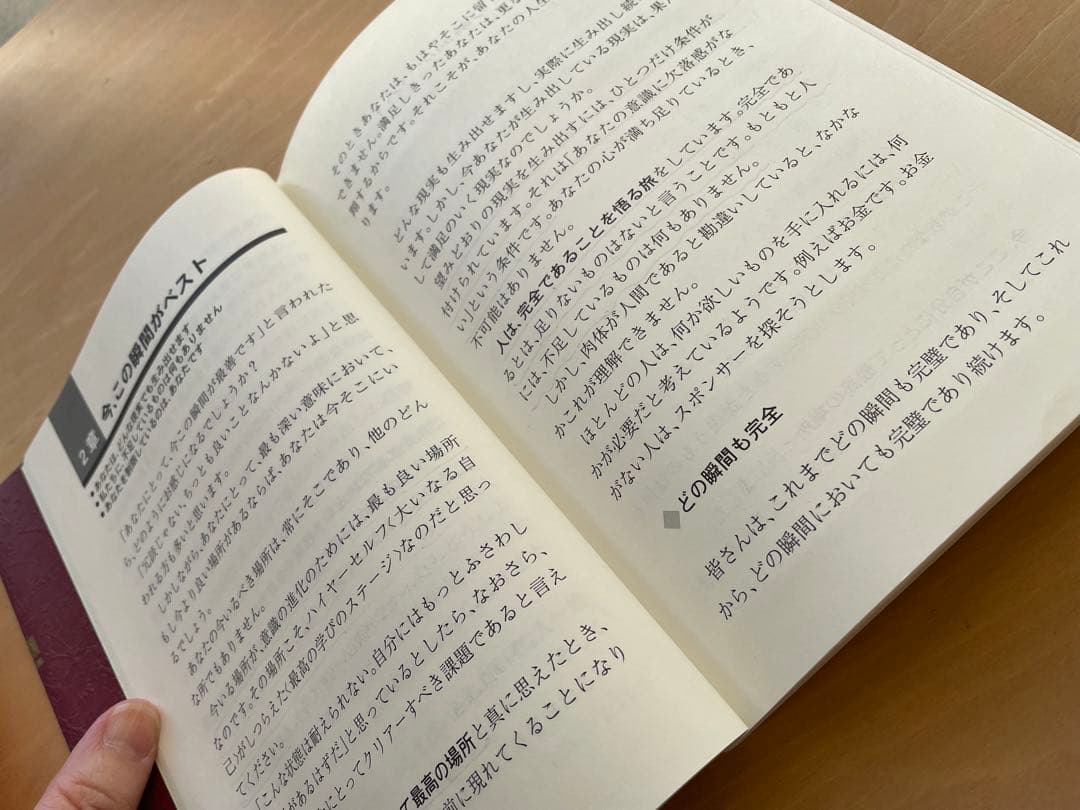 2章 今、この瞬間がベスト
●あなたは、どんな現実でも生み出せます
●私たちに不足しているものは何もありません
●あなたを制限しているのは、あなたです
「あなたにとって、今この瞬間が最善です」と言われた
ら、どのようにお感じになるでしょうか？
「冗談じゃない、ちっとも良いことなんかないよ」と思
われる方も多いと思います。
しかしながら、あなたにとって、最も深い意味において、
もし今より良い場所があるならば、あなたは今そこにい
るでしょう。
あなたの今いるべき場所は、常にそこであり、他のどん
な所でもありません。
今いる場所が、意識の進化のためには、最も良い場所
なのです。その場所こそ、ハイヤーセルフ〈大いなる自
己〉がしつらえた〈最高の学びのステージ〉なのだと思っ
てください。
「こんな状態は耐えられない。自分にはもっとふさわし
があるはずだ」と思っているとしたら、なおさら、
にとってクリアーすべき課題であると言え
て最高の場所と真に思えたとき、
前に現れてくることになり
そのときあなたは、もはやそこに留
できません。満足しきったあなたは、更な
開するからです。それこそが、あなたの人生
ります。
どんな現実も生み出せますし、実際に生み出し続
います。しかし、今あなたが生み出している現実は、果
して満足のいく現実なのでしょうか。
望みどおりの現実を生み出すには、ひとつだけ条件が
付けられています。それは「あなたの意識に欠落感がな
い」という条件です。あなたの心が満ち足りているとき、
不可能はありません。
人は、完全であることを悟る旅をしています。完全であ
るとは、足りないものはないと言うことです。もともと人
には、不足しているものは何もありません。
しかし、肉体が人間であると勘違いしていると、なかな
かこれが理解できません。
ほとんどの人は、何か欲しいものを手に入れるには、何
かが必要だと考えているようです。例えばお金です。お金
がない人は、スポンサーを探そうとします。
■どの瞬間も完全
皆さんは、これまでどの瞬間も完璧であり、そしてこれ
から、どの瞬間においても完璧であり続けます。